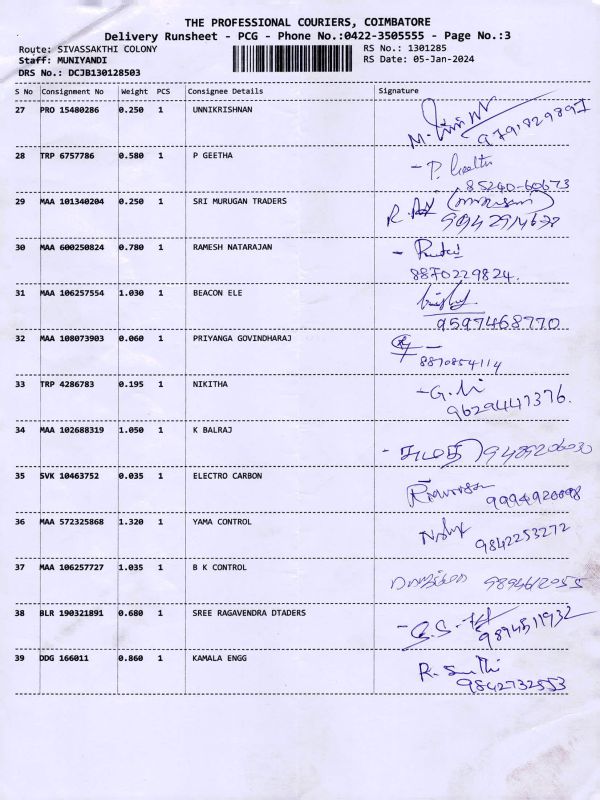 THE PROFESSIONAL COURIERS, COIMBATORE
Delivery Runsheet - PCG - Phone No.:0422-3505555 - Page No.:3
Route: SIVASSAKTHI COLONY RS No.: 1301285
Staff: MUNIYANDI RS Date: 05-Jan-2024
DRS No.: DCJB130128503
S No Consignment No Weight PCS Consignee Details Signature
27 PRO 15480286 0.250 1 UNNIKRISHNAN
28 TRP 6757786 0.580 1 P GEETHA P. Geetha
85240-60673
29 MAA 101340204 0.250 1 SRI MURUGAN TRADERS
30 MAA 600250824 0.780 1 RAMESH NATARAJAN
8870229824.
31 MAA 106257554 1.030 1 BEACON ELE
9597468770
32 MAA 108073903 0.060 1 PRIYANGA GOVINDHARAJ
8870854114
33 TRP 4286783 0.195 1 NIKITHA
9629447376.
34 MAA 102688319 1.050 1 K BALRAJ
- சுமதி) 9489206030
35 SVK 10463752 0.035 1 ELECTRO CARBON
36 MAA 572325868 1.320 1 YAMA CONTROL
9842253272
37 MAA 106257727 1.035 1 B K CONTROL
9894612055
38 BLR 190321891 0.680 1 SREE RAGAVENDRA DTADERS
9894511932
39 DDG 166011 0.860 1 KAMALA ENGG
9842732553